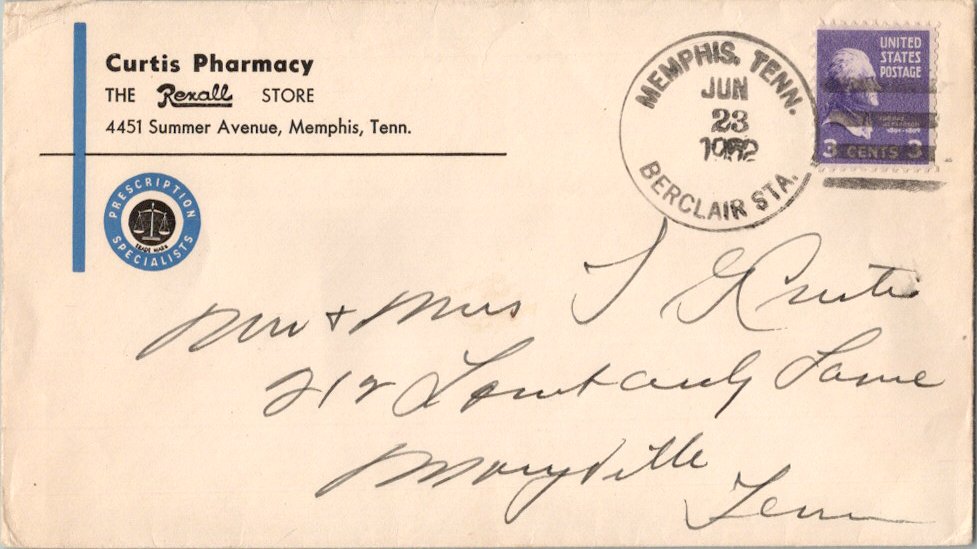 Curtis Pharmacy
THE Rexall STORE
4451 Summer Avenue, Memphis, Tenn.
PRESCRIPTION
SPECIALISTS
TRADE MARK
MEMPHIS, TENN.
JUN
23
BERCLAIR STA.
UNITED
STATES
POSTAGE
3 CENTS 3
Mr + Mrs
212 Lane
Maryville
Tenn